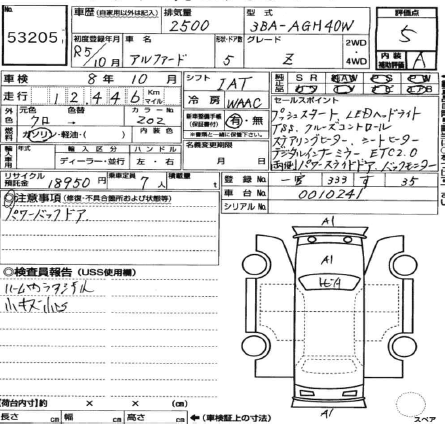 No. 53205
車歴 (自家用以外は記入) 排気量 2500 型式 3BA-AGH40W 評価点 5
初度登録年月 R5/10月 車名 アルファード 形状・ドア数 5 グレード Z 2WD 4WD 内装補助評価 A
車検 8年10月 シフト IAT 純正品 SR AW PS PW
走行 12,446 Km マイル 冷房 WAAC セールスポイント
外色 元色 クロ → 色替 カラーNo. 202 新車整備手帳(保証書付) 有・無 プッシュスタート LEDヘッドライト
燃料 ガソリン・軽油・( ) 内装色 ※書類と一緒に保管下さい。 TSS. クルーズコントロール
輸入車用 年式 輸入区分 ハンドル 名義変更期限 ステアリングヒーター、シートヒーター
ディーラー・並行 左・右 月 日 デジタルインナーミラー ETC2.0
両側パワースライドドア、バックモニター
リサイクル預託金 18950円 乗車定員 7人 積載量 t 登録No. 333 す 35
◎注意事項 (修復・不具合箇所および状態等) 車台No. 0010241
パワーバックドア シリアルNo.
◎検査員報告 (USS使用欄)
小キズ小凹
A1
A1
A1
【荷台内寸】約 × × (cm)
長さ cm 幅 cm 高さ cm ←(車検証上の寸法)
スペア